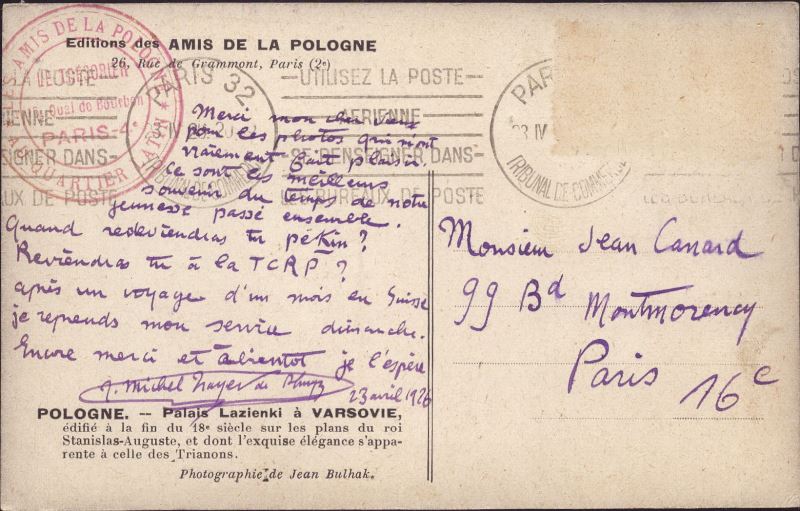 Editions des AMIS DE LA POLOGNE
26, Rue de Grammont, Paris (2e)
LES AMIS DE LA POLOGNE
16, Quai de Bourbon
PARIS-4e
QUARTIER LATIN
PARIS 32
TRIBUNAL DE COMMERCE
UTILISEZ LA POSTE
AERIENNE
SE RENSEIGNER DANS
LES BUREAUX DE POSTE
Merci mon cher
pour les photos qui m'ont
vraiement fait plaisir.
Ce sont les meilleurs
souvenir du temps de notre
jeunesse passé ensemble.
Quand redeviendras tu pékin?
Reviendras tu à la TCRP?
après un voyage d'un mois en Suisse
je reprends mon service dimanche.
Encore merci et à bientot je l'espère
J. Michel
23 avril 1926
Monsieur Jean Canard
99 Bd Montmorency
Paris 16e
POLOGNE. -- Palais Lazienki à VARSOVIE,
édifié à la fin du 18e siècle sur les plans du roi
Stanislas-Auguste, et dont l'exquise élégance s'appa-
rente à celle des Trianons.
Photographie de Jean Bulhak.